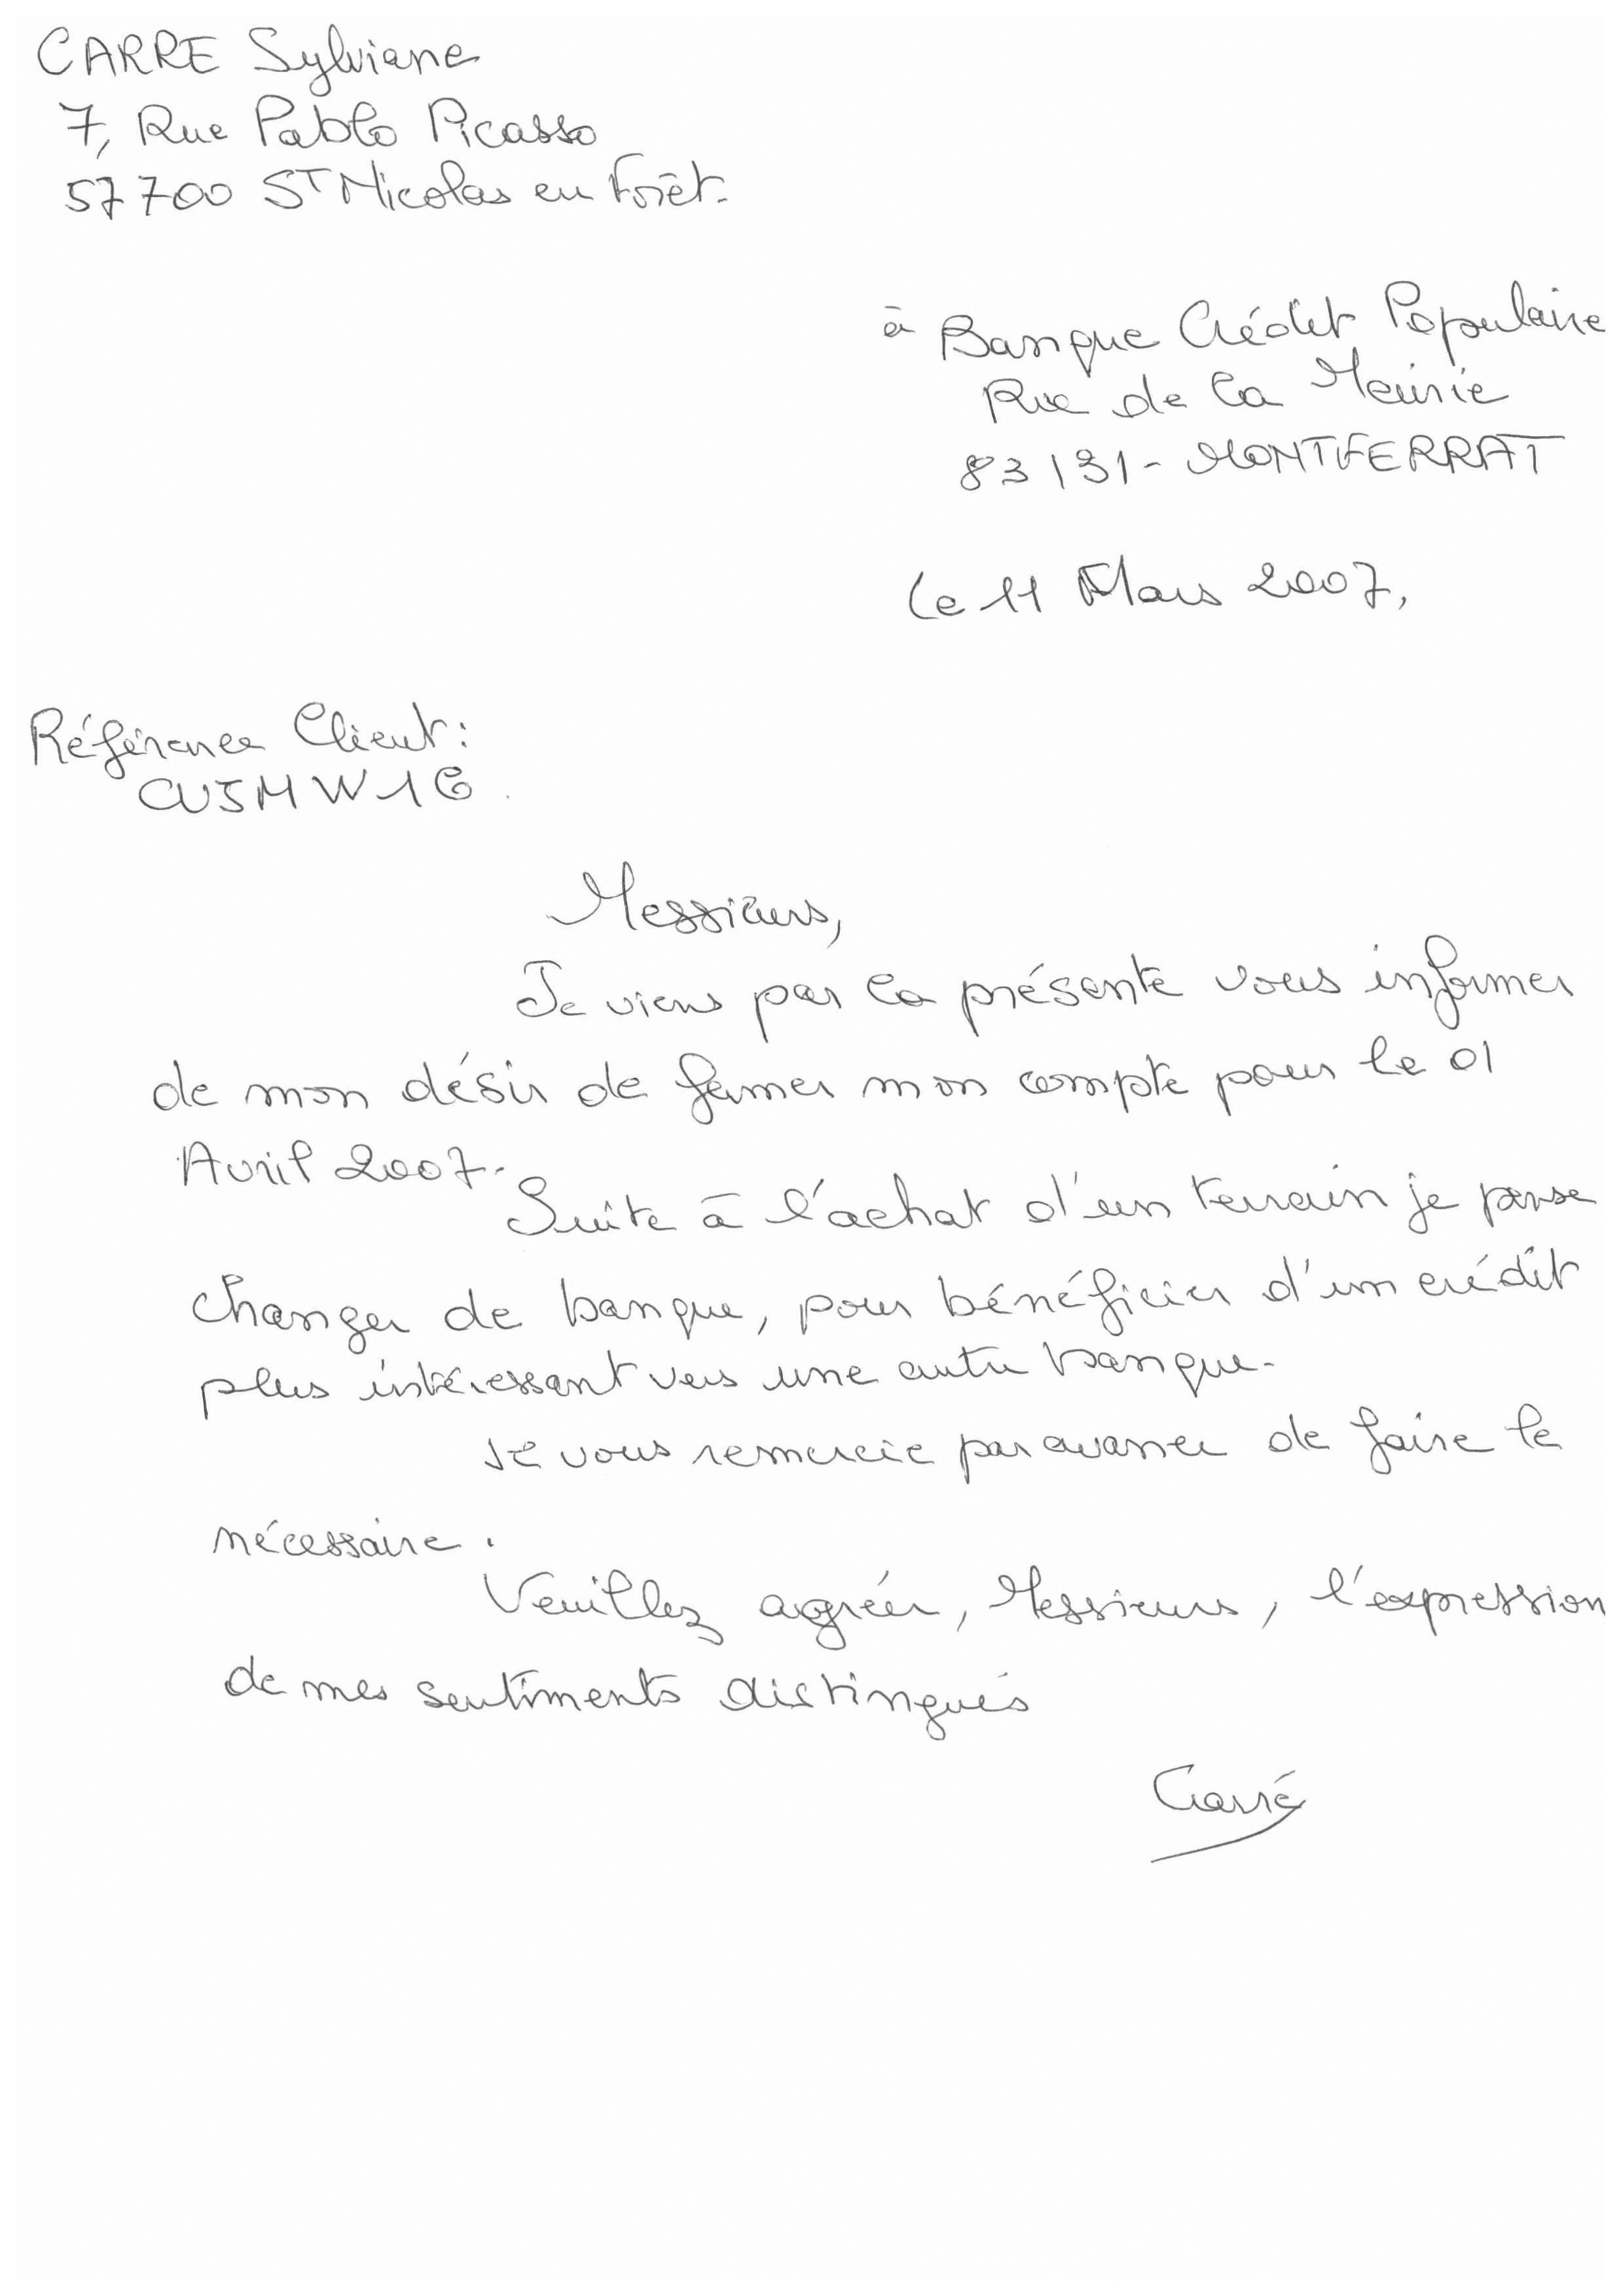 CARRE Sylviane
7, Rue Pablo Picasso
57700 ST Nicolas en Forêt.
à Banque Crédit Populaire
Rue de la Mairie
83131 - MONTFERRAT
Le 11 Mars 2007,
Référence Client :
Messieurs,
Je viens par la présente vous informer
de mon désir de fermer mon compte pour le 01
Avril 2007.
Suite à l'achat d'un terrain je pense
changer de banque, pour bénéficier d'un crédit
plus intéressant vers une autre banque.
Je vous remercie par avance de faire le
nécessaire.
Veuillez agréer, Messieurs, l'expression
de mes sentiments distingués
Carré